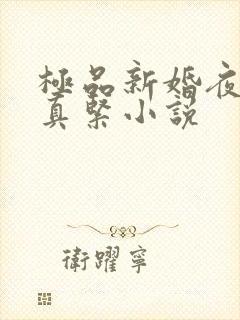 極品新婚夜
真緊小説
衛躍寧